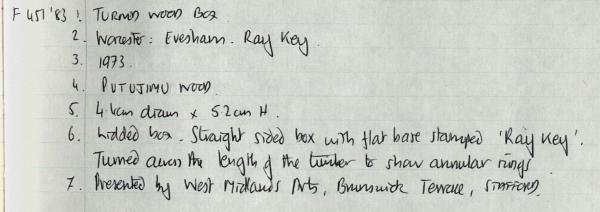 F 451 '83 1. TURNED WOOD BOX
2. Worcester: Evesham. Ray Key.
3. 1973.
4. PUTUJIMU WOOD.
5. 4.4cm diam x 5.2cm H.
6. Lidded box. Straight sided box with flat base stamped 'Ray Key'.
Turned across the length of the timber to show annular rings
7. Presented by West Midlands Arts, Brunswick Terrace, STAFFORD.